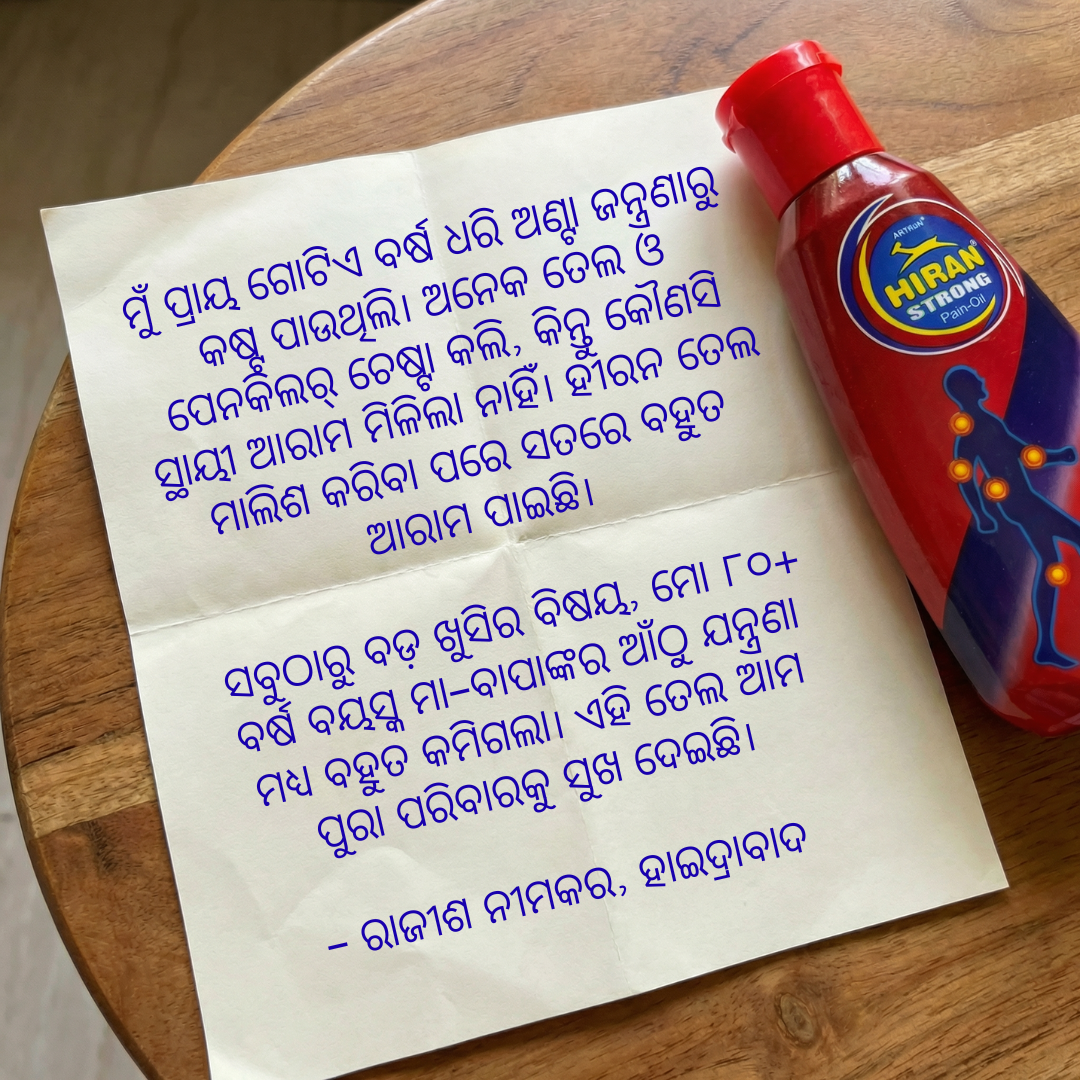 ମୁଁ ପ୍ରାୟ ଗୋଟିଏ ବର୍ଷ ଧରି ଅଣ୍ଟା ଜନ୍ତ୍ରଣାରୁ
କଷ୍ଟ ପାଉଥିଲି। ଅନେକ ତେଲ ଓ
ପେନକିଲର୍ ଚେଷ୍ଟା କଲି, କିନ୍ତୁ କୌଣସି
ସ୍ଥାୟୀ ଆରାମ ମିଳିଲା ନାହିଁ। ହୀରନ ତେଲ
ମାଲିଶ କରିବା ପରେ ସତରେ ବହୁତ
ଆରାମ ପାଇଛି।
ସବୁଠାରୁ ବଡ଼ ଖୁସିର ବିଷୟ, ମୋ ୮୦+
ବର୍ଷ ବୟସ୍କ ମା-ବାପାଙ୍କର ଆଁଠୁ ଯନ୍ତ୍ରଣା
ମଧ୍ୟ ବହୁତ କମିଗଲା। ଏହି ତେଲ ଆମ
ପୁରା ପରିବାରକୁ ସୁଖ ଦେଇଛି।
- ରାଜୀଶ ନୀମକର, ହାଇଦ୍ରାବାଦ
ARTRON®
HIRAN®
STRONG
Pain-Oil